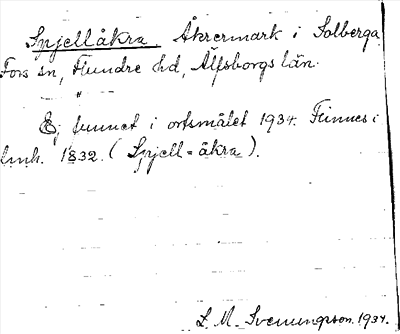 Spjellåkra. Åkrermark i Solberga
Fors sn, Flundre hd, Älfsborgs län.
"
Ej funnet i ortsmålet 1934. Finnes i
lmh. 1832. (Spjell-åkra).
L. M. Svenungsson. 1934.